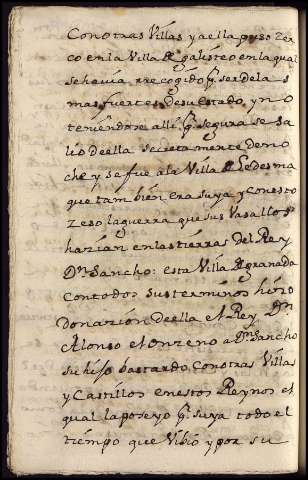 Con otras Villas y a ella puso Zer
co en la Villa de galisteo en la qual
se havia rrecogido pr. ser de las
mas fuertes de su estado, y no
teniendose alli pr. segura se sa
lio de ella secretamente de no
che y se fue a la Villa de Ledesma
que tambien era suya y con esto
Zeso la guerra que sus Vasallos
hazian en las tierras del Rey
Dn. Sancho: esta Villa de granada
con todos sus terminos hizo
Donazion de ella el Rey Dn.
Alonso el onzeno a Dn. Sancho
su hijo bastardo con otras Villas
y Castillos en estos Reynos el
qual la poseyo pr. suya todo el
tiempo que Vibio y por su